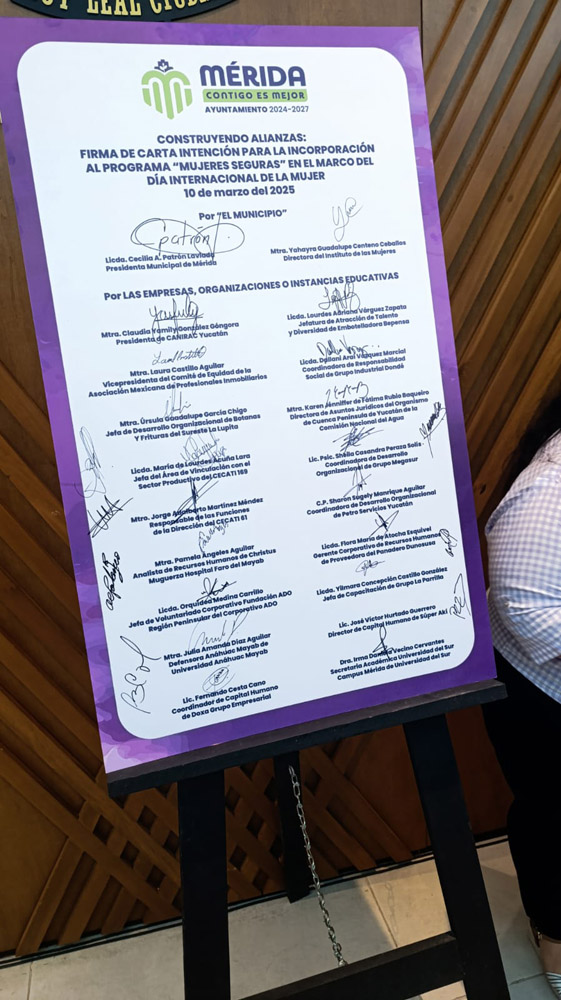 LEAL
MÉRIDA
CONTIGO ES MEJOR
AYUNTAMIENTO 2024-2027
CONSTRUYENDO ALIANZAS:
FIRMA DE CARTA INTENCIÓN PARA LA INCORPORACIÓN
AL PROGRAMA “MUJERES SEGURAS” EN EL MARCO DEL
DÍA INTERNACIONAL DE LA MUJER
10 de marzo del 2025
Por “EL MUNICIPIO”
Cpatrón
Licda. Cecilia A. Patrón Laviada
Presidenta Municipal de Mérida
Mtra. Yahayra Guadalupe Centeno Ceballos
Directora del Instituto de las Mujeres
Por LAS EMPRESAS, ORGANIZACIONES O INSTANCIAS EDUCATIVAS
Mtra. Claudia Yamily González Góngora
Presidenta de CANIRAC Yucatán
Mtra. Laura Castillo Aguilar
Vicepresidenta del Comité de Equidad de la
Asociación Mexicana de Profesionales Inmobiliarios
Mtra. Úrsula Guadalupe García Chigo
Jefa de Desarrollo Organizacional de Botanas
y Frituras del Sureste La Lupita
Licda. María de Lourdes Acuña Lara
Jefa del Área de Vinculación con el
Sector Productivo del CECATI 169
Mtro. Jorge Adalberto Martínez Méndez
Responsable de las Funciones
de la Dirección del CECATI 61
Mtra. Pamela Ángeles Aguilar
Analista de Recursos Humanos de Christus
Muguerza Hospital Faro del Mayab
Licda. Orquídea Medina Carrillo
Jefa de Voluntariado Corporativo Fundación ADO
Región Peninsular del Corporativo ADO
Mtra. Julia Amanda Díaz Aguilar
Defensora Anáhuac Mayab de
Universidad Anáhuac Mayab
Lic. Fernando Cesta Cano
Coordinador de Capital Humano
de Doxa Grupo Empresarial
Licda. Lourdes Adriana Várguez Zapata
Jefatura de Atracción de Talento
y Diversidad de Embotelladora Bepensa
Licda. Dallani Arai Vázquez Marcial
Coordinadora de Responsabilidad
Social de Grupo Industrial Dondé
Mtra. Karen Jenniffer de Fátima Rubio Baqueiro
Directora de Asuntos Jurídicos del Organismo
de Cuenca Península de Yucatán de la
Comisión Nacional del Agua
Lic. Psic. Sheila Casandra Peraza Solis
Coordinadora de Desarrollo
Organizacional de Grupo Megasur
C.P. Sharon Sugely Manrique Aguilar
Coordinadora de Desarrollo Organizacional
de Petro Servicios Yucatán
Licda. Flora María de Atocha Esquivel
Gerente Corporativo de Recursos Humanos
de Proveedora del Panadero Dunosusa
Licda. Yilmara Concepción Castillo González
Jefa de Capacitación de Grupo La Parrilla
Lic. José Víctor Hurtado Guerrero
Director de Capital Humano de Súper Aki
Dra. Irma Daniela Vecino Cervantes
Secretaria Académica Universidad del Sur
Campus Mérida de Universidad del Sur